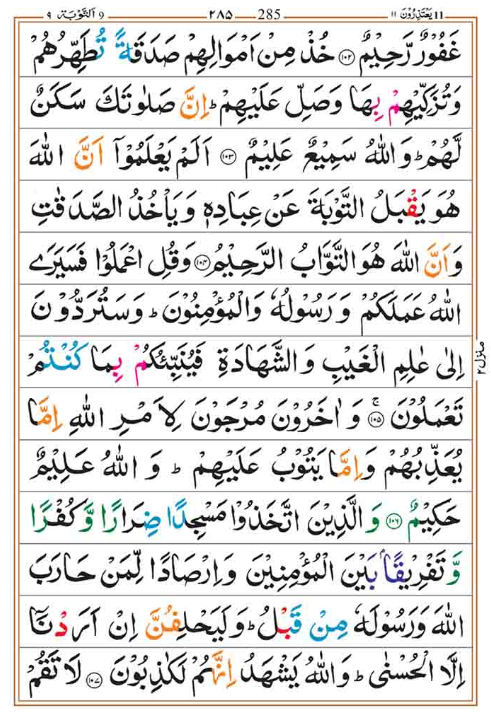 ۱۱ یَعْتَذِرُوْنَ ۱۱ 285 ۲۸۵ 9 اَلتَّوْبَة ۹
غَفُوْرٌ رَّحِیْمٌ ۝۱۰۲ خُذْ مِنْ اَمْوَالِهِمْ صَدَقَةً تُطَهِّرُهُمْ
وَتُزَكِّیْهِمْ بِهَا وَصَلِّ عَلَیْهِمْ ؕ اِنَّ صَلٰوتَكَ سَكَنٌ
لَّهُمْ ؕ وَاللّٰهُ سَمِیْعٌ عَلِیْمٌ ۝۱۰۳ اَلَمْ یَعْلَمُوْۤا اَنَّ اللّٰهَ
هُوَ یَقْبَلُ التَّوْبَةَ عَنْ عِبَادِهٖ وَیَاْخُذُ الصَّدَقٰتِ
وَاَنَّ اللّٰهَ هُوَ التَّوَّابُ الرَّحِیْمُ ۝۱۰۴ وَقُلِ اعْمَلُوْا فَسَیَرَی
اللّٰهُ عَمَلَكُمْ وَرَسُوْلُهٗ وَالْمُؤْمِنُوْنَ ؕ وَسَتُرَدُّوْنَ
اِلٰی عٰلِمِ الْغَیْبِ وَالشَّهَادَةِ فَیُنَبِّئُكُمْ بِمَا كُنْتُمْ
تَعْمَلُوْنَ ۝۱۰۵ۚ وَاٰخَرُوْنَ مُرْجَوْنَ لِاَمْرِ اللّٰهِ اِمَّا
یُعَذِّبُهُمْ وَاِمَّا یَتُوْبُ عَلَیْهِمْ ؕ وَاللّٰهُ عَلِیْمٌ
حَكِیْمٌ ۝۱۰۶ وَالَّذِیْنَ اتَّخَذُوْا مَسْجِدًا ضِرَارًا وَّكُفْرًا
وَّتَفْرِیْقًۢا بَیْنَ الْمُؤْمِنِیْنَ وَاِرْصَادًا لِّمَنْ حَارَبَ
اللّٰهَ وَرَسُوْلَهٗ مِنْ قَبْلُ ؕ وَلَیَحْلِفُنَّ اِنْ اَرَدْنَاۤ
اِلَّا الْحُسْنٰی ؕ وَاللّٰهُ یَشْهَدُ اِنَّهُمْ لَكٰذِبُوْنَ ۝۱۰۷ لَا تَقُمْ
منزل ۲